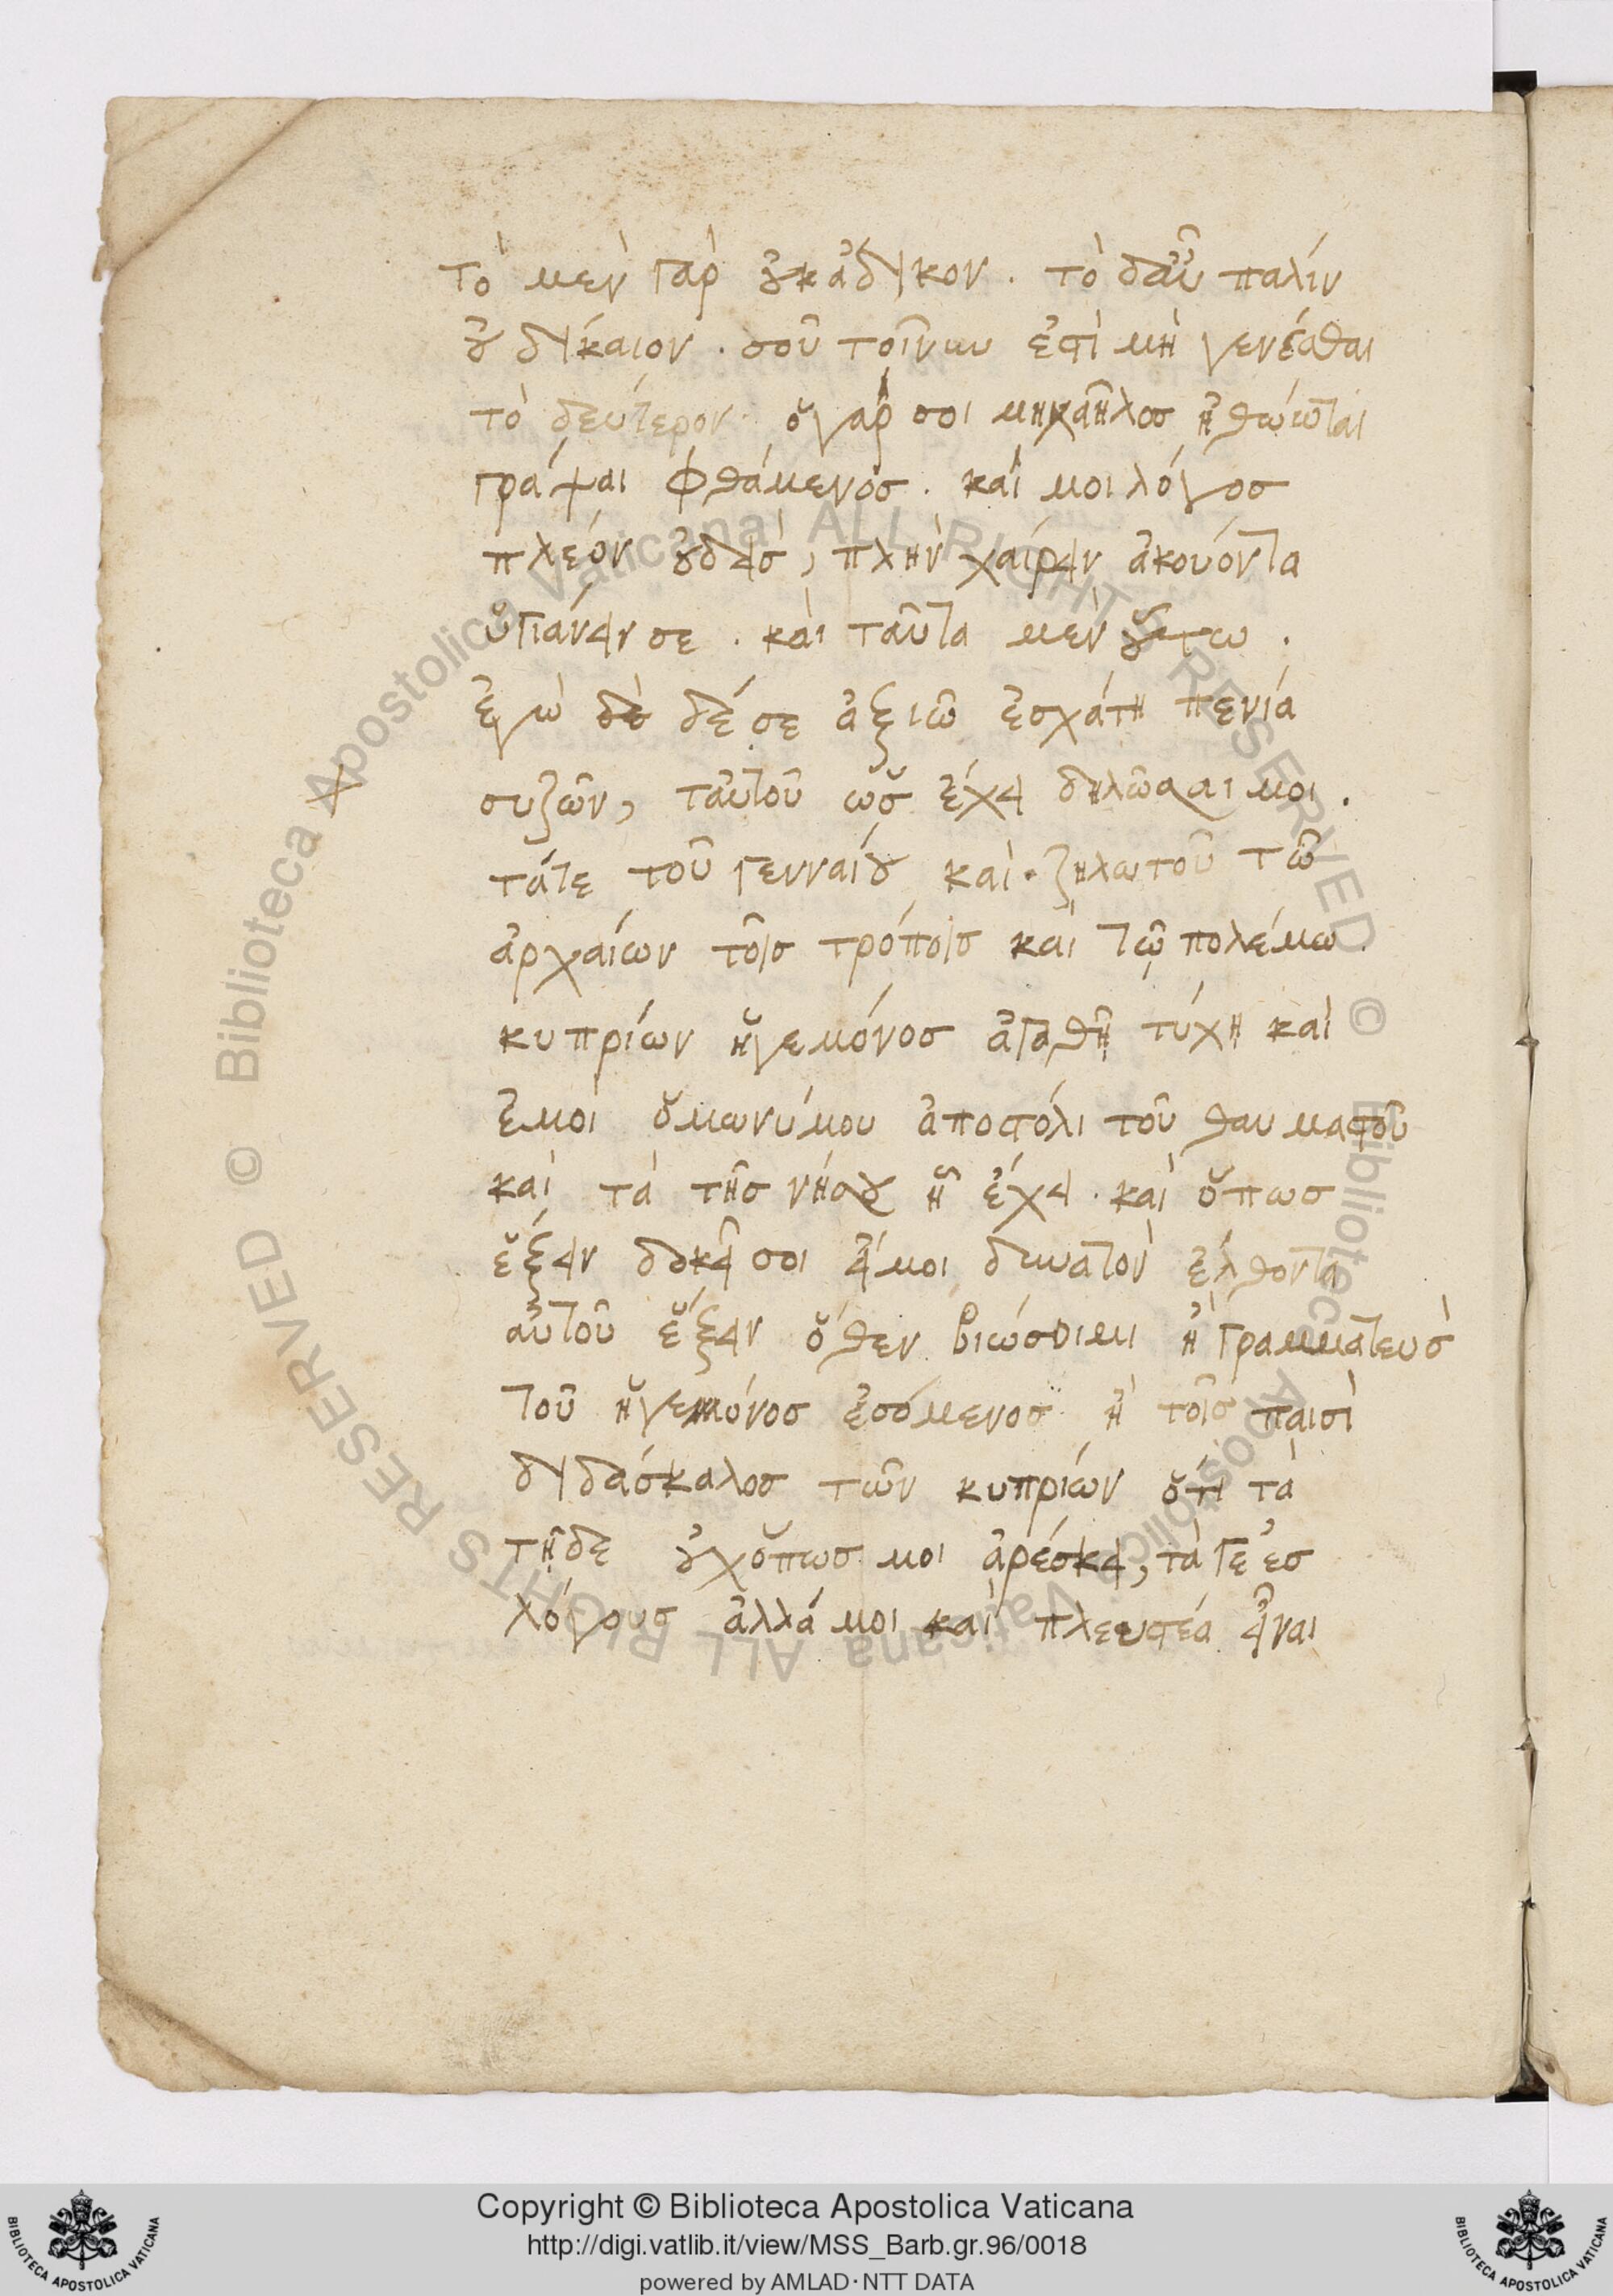 τὸ μὲν γὰρ οὐκ ἄδικον . τὸ δ᾽ αὖ παλίν
οὐ δίκαιον . σοῦ τοῖνυν ἐστὶ μὴ γενέσθαι
τὸ δεύτερον ὁ γάρ σοι μηχαῆλος
γράψαι φθάμενος . καί μοι λόγος
πλέον οὐδεὶς , πλὴν χαίρειν ἀκουόντα
ὑγιάνειν σε . καὶ ταῦτα μὲν οὕτω .
ἐγὼ δὲ δέ σε ἀξιῶ ἐσχάτη πενία
συζῶν , ταὐτοῦ ὡς ἔχει δηλῶσαι μοι .
τάτε τοῦ γενναίου καὶ . ζηλωτοῦ τῶ
ἀρχαίων τοῖς τρόποις καὶ τῷ πολέμω .
κυπρίων ἡγεμόνος ἀγαθῇ τύχη καὶ
ἐμοὶ ὁμωνύμου ἀποστόλι τοῦ θαυμαστοῦ
καὶ τὰ τῆς νήσου ᾗ ἔχει . καὶ ὅπως
ἕξειν δοκεῖ σοι εἴ μοι δυνατὸν ἐλθόντα
αὐτοῦ ἕξειν ὅθεν βιώσοιμι ἢ γραμματεὺς
τοῦ ἡγεμόνος ἐσόμενος ἢ τοῖς παισὶ
διδάσκαλος τῶν κυπρίων ὅτι τὰ
τῇδε οὐχ ὅπως μοι ἀρέσκει , τά γε ἐς
λόγους ἀλλά μοι καὶ πλευστέα εἶναι
Copyright © Biblioteca Apostolica Vaticana
http://digi.vatlib.it/view/MSS_Barb.gr.96/0018
powered by AMLAD·NTT DATA
BIBLIOTECA APOSTOLICA VATICANA
BIBLIOTECA APOSTOLICA VATICANA
© Biblioteca Apostolica Vaticana ALL RIGHTS RESERVED
© Biblioteca Apostolica Vaticana ALL RIGHTS RESERVED